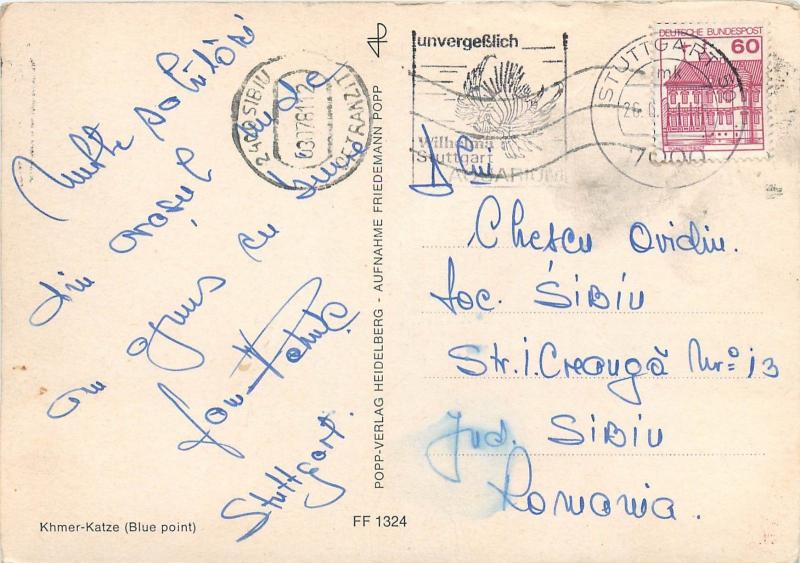 Multe salutări
din orașul unde
am ajuns cu bine
Stuttgart.
Khmer-Katze (Blue point)
FF 1324
POPP-VERLAG HEIDELBERG - AUFNAHME FRIEDEMANN POPP
2400 SIBIU
unvergeßlich
Wilhelma
Stuttgart
AQUARIUM
STUTTGART
DEUTSCHE BUNDESPOST
60
Chescu Ovidiu.
loc. SIBIU
Str. I. Creangă Nr: 13
Jud. SIBIU
Romania.